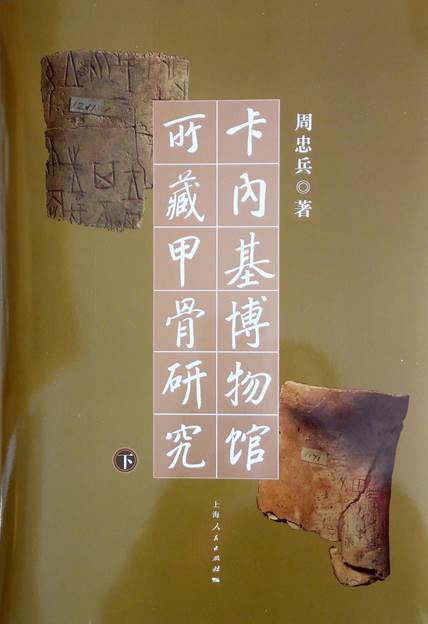 周忠兵◎著
卡内基博物馆
所藏甲骨研究
下
上海人民出版社
1171